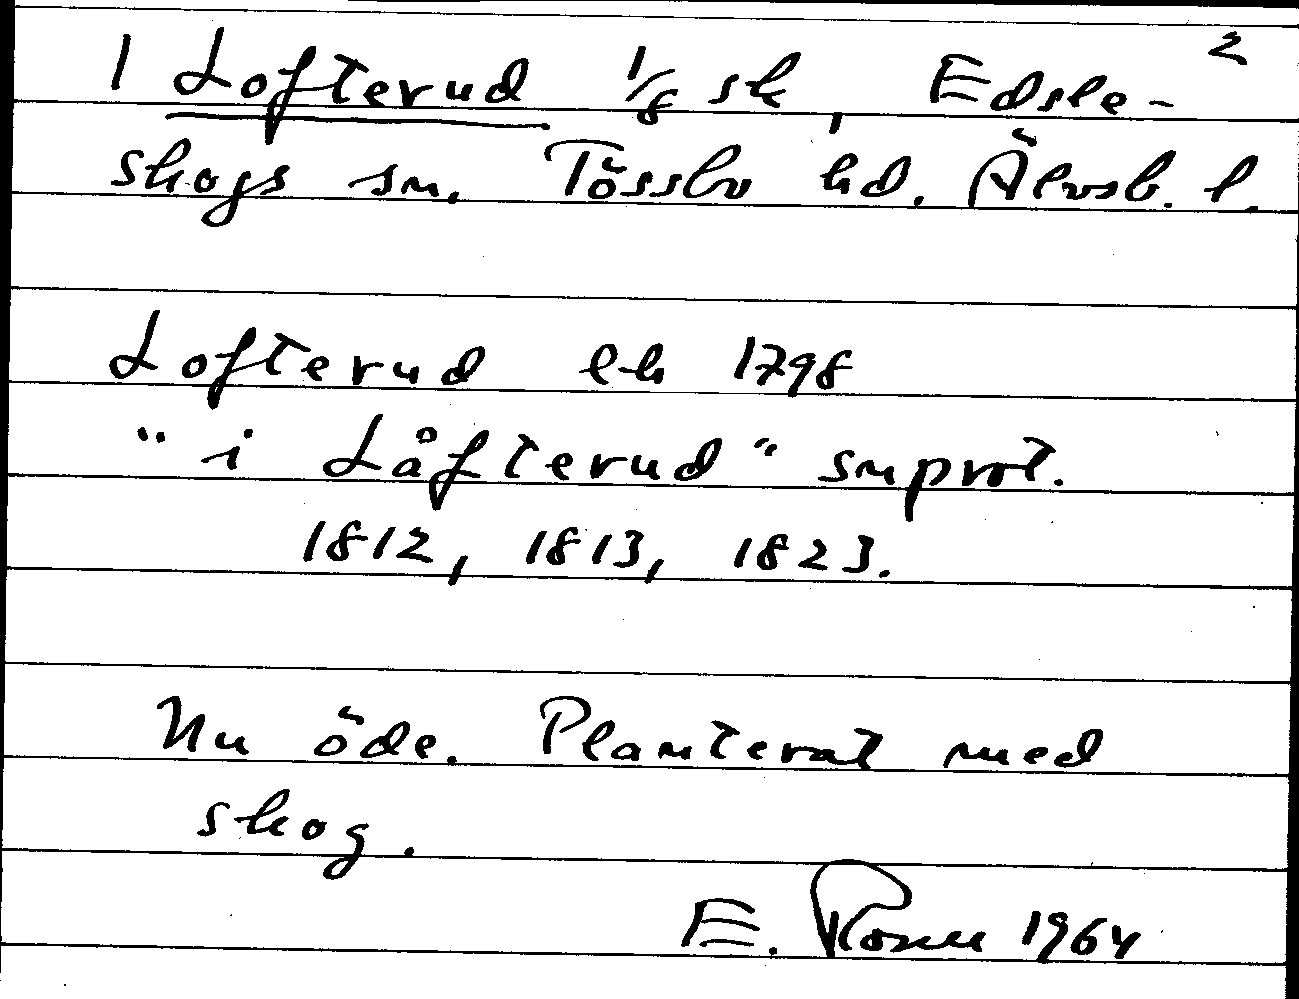 2
1 Lofterud 1/8 sk, Edsle-
skogs sn. Tössbo hd. Älvsb. l.
Lofterud lh 1798
"i Låfterud" snprot.
1812, 1813, 1823.
Nu öde. Planterat med
skog.
E. Rosen 1964